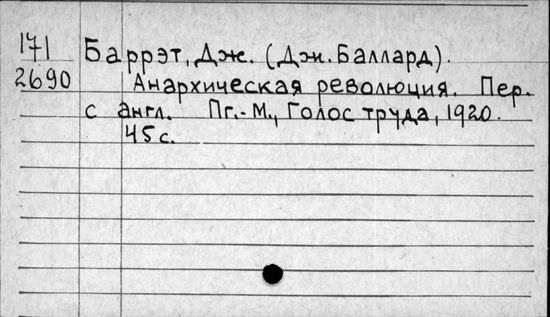 171 Баррэт, Дж. (Дж. Баллард).
2690 Анархическая революция. Пер.
с англ. Пг.-М., Голос труда, 1920.
45 с.